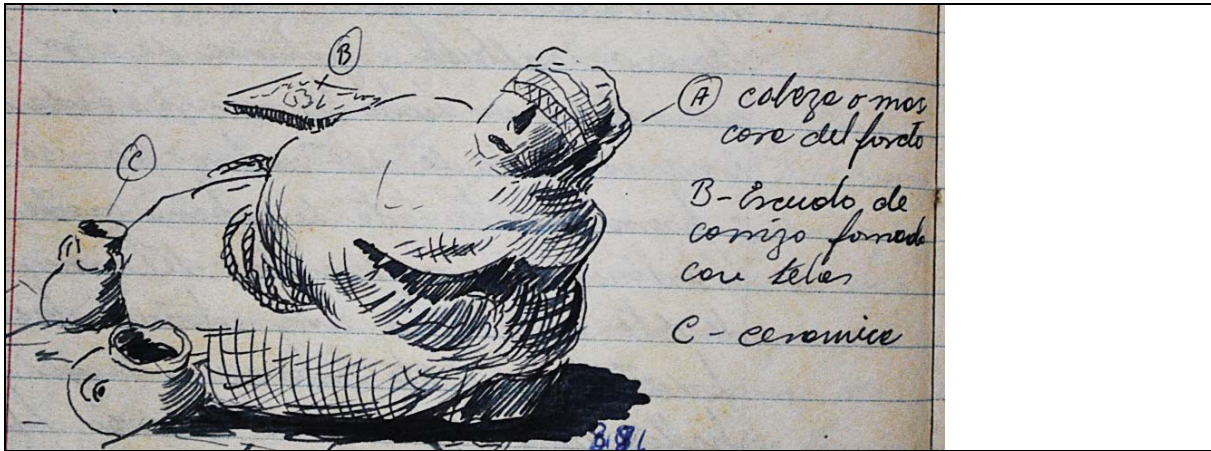 B
C
A cabeza o mas
cara del fardo
B-Escudo de
carrizo forrado
con telas
C - ceramica